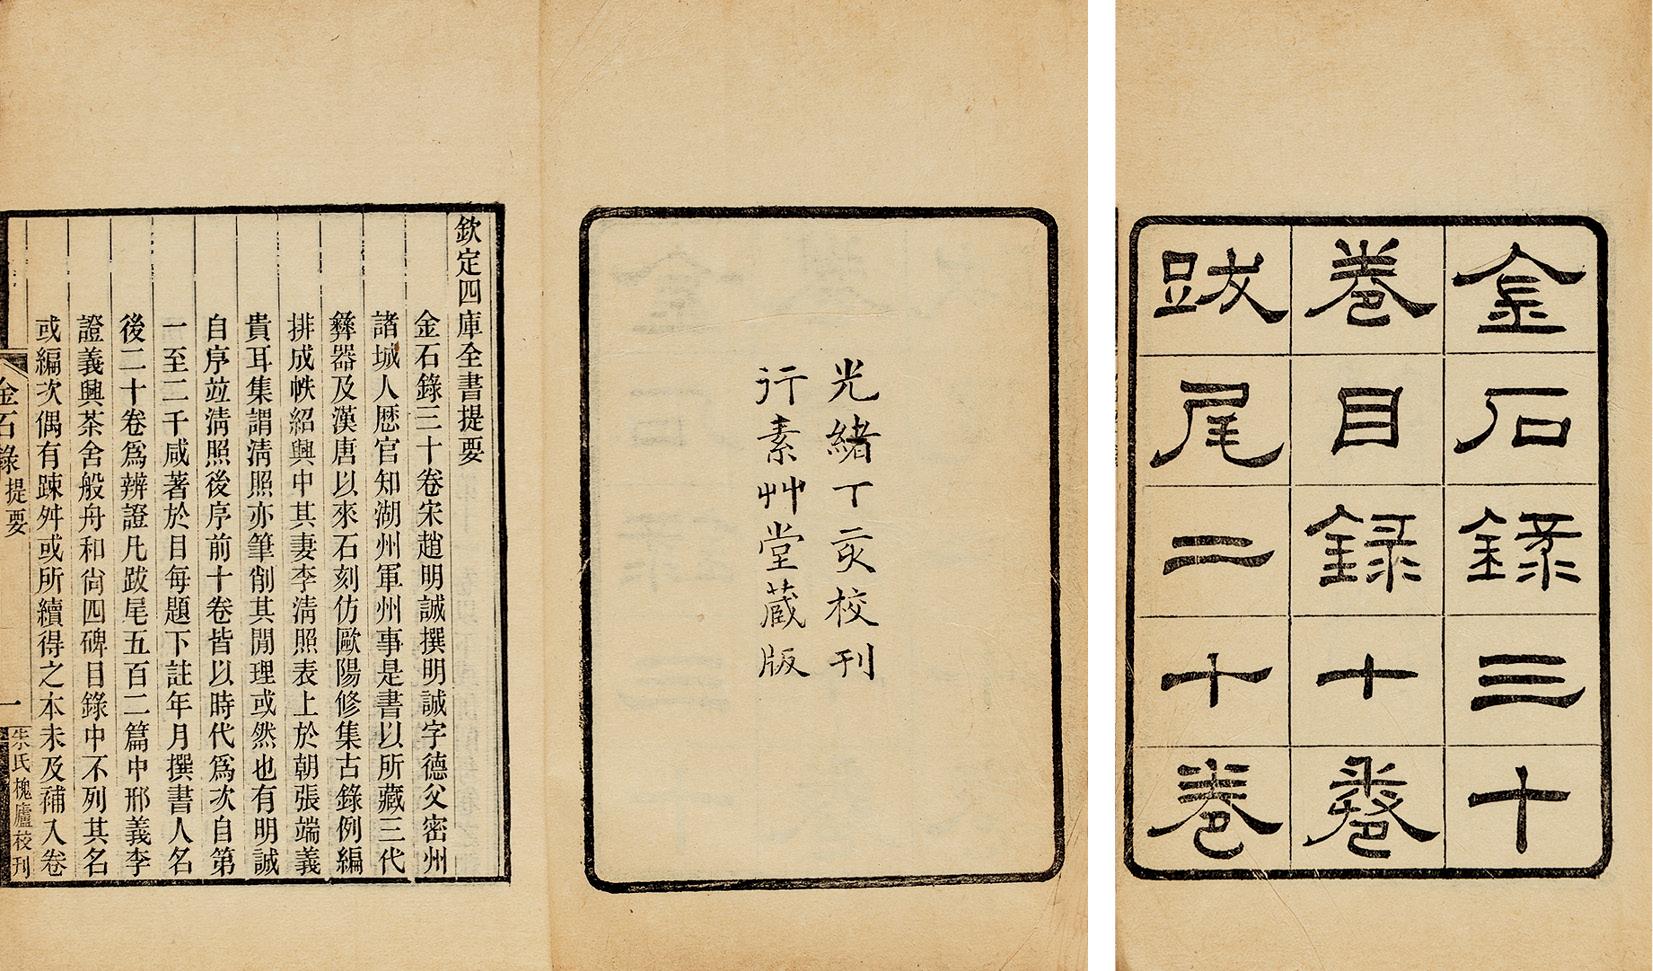 金石錄三十
卷目錄十卷
跋尾二十卷
光緒丁亥校刊
行素艸堂藏版
欽定四庫全書提要
金石錄三十卷宋趙明誠撰明誠字德父密州
諸城人歷官知湖州軍州事是書以所藏三代
彝器及漢唐以來石刻仿歐陽修集古錄例編
排成帙紹興中其妻李清照表上於朝張端義
貴耳集謂清照亦筆削其閒理或然也有明誠
自序竝清照後序前十卷皆以時代爲次自第
一至二千咸著於目每題下註年月撰書人名
後二十卷爲辨證凡跋尾五百二篇中邢義李
證義興茶舍般舟和尙四碑目錄中不列其名
或編次偶有踈舛或所續得之本未及補入卷
金石錄提要
一
朱氏槐廬校刊